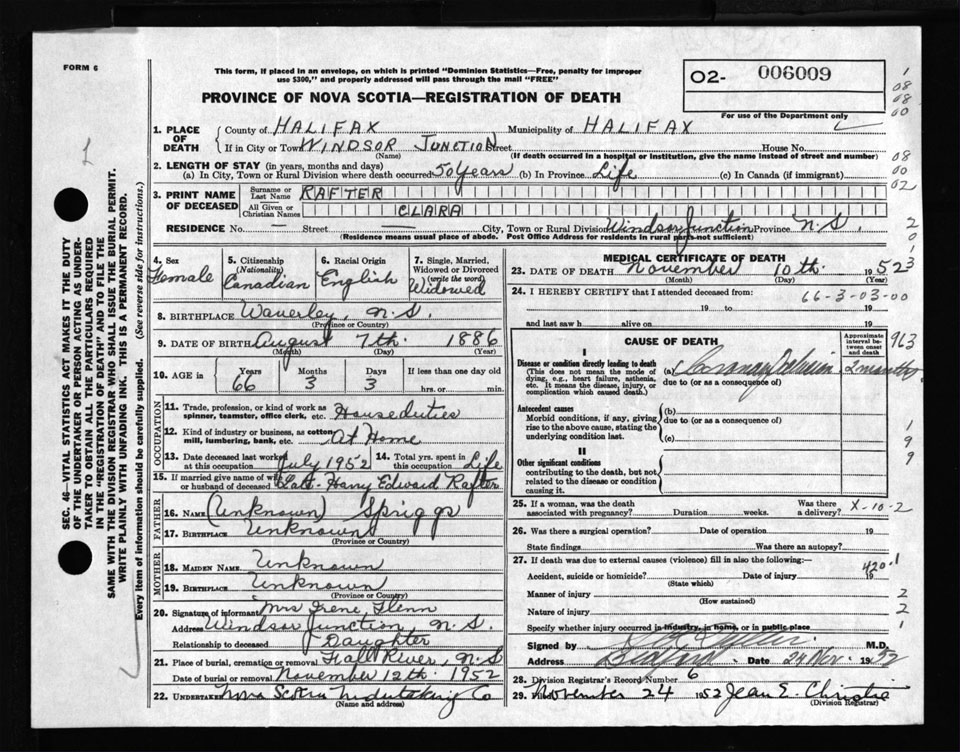 FORM 6
This form, if placed in an envelope, on which is printed "Dominion Statistics—Free, penalty for improper
use $300," and properly addressed will pass through the mail "FREE"
O2- 006009
For use of the Department only
PROVINCE OF NOVA SCOTIA—REGISTRATION OF DEATH
1. PLACE OF DEATH
County of HALIFAX Municipality of HALIFAX
If in City or Town WINDSOR JUNCTION Street House No.
(Name) (If death occurred in a hospital or institution, give the name instead of street and number)
2. LENGTH OF STAY (in years, months and days)
(a) In City, Town or Rural Division where death occurred 50 Years (b) In Province Life (c) In Canada (if immigrant)
3. PRINT NAME OF DECEASED
Surname or Last Name RAFTER
All Given or Christian Names CLARA
RESIDENCE No. — Street — City, Town or Rural Division Windsor Junction Province N.S.
(Residence means usual place of abode. Post Office Address for residents in rural parts not sufficient)
4. Sex Female
5. Citizenship (Nationality) Canadian
6. Racial Origin English
7. Single, Married, Widowed or Divorced (write the word) Widowed
8. BIRTHPLACE Waverley, N.S.
(Province or Country)
9. DATE OF BIRTH August 7th. 1886
(Month) (Day) (Year)
10. AGE in Years 66 Months 3 Days 3 If less than one day old hrs. or min.
OCCUPATION
11. Trade, profession, or kind of work as spinner, teamster, office clerk, etc. House duties
12. Kind of industry or business, as cotton mill, lumbering, bank, etc. At Home
13. Date deceased last worked at this occupation July 1952
14. Total yrs. spent in this occupation Life
15. If married give name of wife or husband of deceased Late Harry Edward Rafter
FATHER
16. NAME (Unknown) Spriggs
17. BIRTHPLACE Unknown
(Province or Country)
MOTHER
18. MAIDEN NAME Unknown
19. BIRTHPLACE Unknown
(Province or Country)
20. Signature of informant Mrs Irene Glenn
Address Windsor Junction, N.S.
Relationship to deceased Daughter
21. Place of burial, cremation or removal Fall River, N.S
Date of burial or removal November 12th. 1952
22. UNDERTAKER Nova Scotia Undertaking Co
(Name and address)
MEDICAL CERTIFICATE OF DEATH
23. DATE OF DEATH November 10th. 1952
(Month) (Day) (Year)
24. I HEREBY CERTIFY that I attended deceased from:
66-3-03-00
19 to 19
and last saw h alive on 19
CAUSE OF DEATH
Approximate interval between onset and death
I
Disease or condition directly leading to death
(This does not mean the mode of dying, e.g., heart failure, asthenia, etc. It means the disease, injury, or complication which caused death.)
(a) Coronary
due to (or as a consequence of)
Antecedent causes
Morbid conditions, if any, giving rise to the above cause, stating the underlying condition last.
(b)
due to (or as a consequence of)
(c)
II
Other significant conditions
contributing to the death, but not related to the disease or condition causing it.
25. If a woman, was the death associated with pregnancy? Duration weeks. Was there a delivery? X-10-2
26. Was there a surgical operation? Date of operation 19
State findings Was there an autopsy?
27. If death was due to external causes (violence) fill in also the following:
420.1
Accident, suicide or homicide? Date of injury 19
(State which)
Manner of injury
(How sustained)
Nature of injury
Specify whether injury occurred in industry, in home, or in public place
Signed by M.D.
Address Date 24 Nov. 1952
28. Division Registrar's Record Number 6
29. Filed November 24 1952 Jean E. Christie
(Division Registrar)
SEC. 46—VITAL STATISTICS ACT MAKES IT THE DUTY
OF THE UNDERTAKER OR PERSON ACTING AS UNDER-
TAKER TO OBTAIN ALL THE PARTICULARS REQUIRED
IN THE "REGISTRATION OF DEATH" AND TO FILE THE
SAME WITH THE DIVISION REGISTRAR WHO SHALL ISSUE THE BURIAL PERMIT.
WRITE PLAINLY WITH UNFADING INK. THIS IS A PERMANENT RECORD.
Every item of information should be carefully supplied. (See reverse side for instructions.)
1
08
08
00
08
00
02
2
0
1
3
963
1
9
9
1
2
2
1